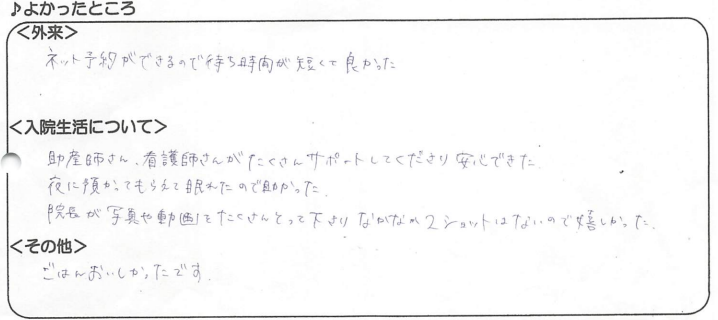 ♪よかったところ
＜外来＞
ネット予約ができるので待ち時間が短くて良かった
＜入院生活について＞
助産師さん、看護師さんがたくさんサポートしてくださり安心できた.
夜に預かってもらえて眠れたので助かった.
院長が写真や動画をたくさんとって下さりなかなか2ショットはないので嬉しかった.
＜その他＞
ごはんおいしかったです.